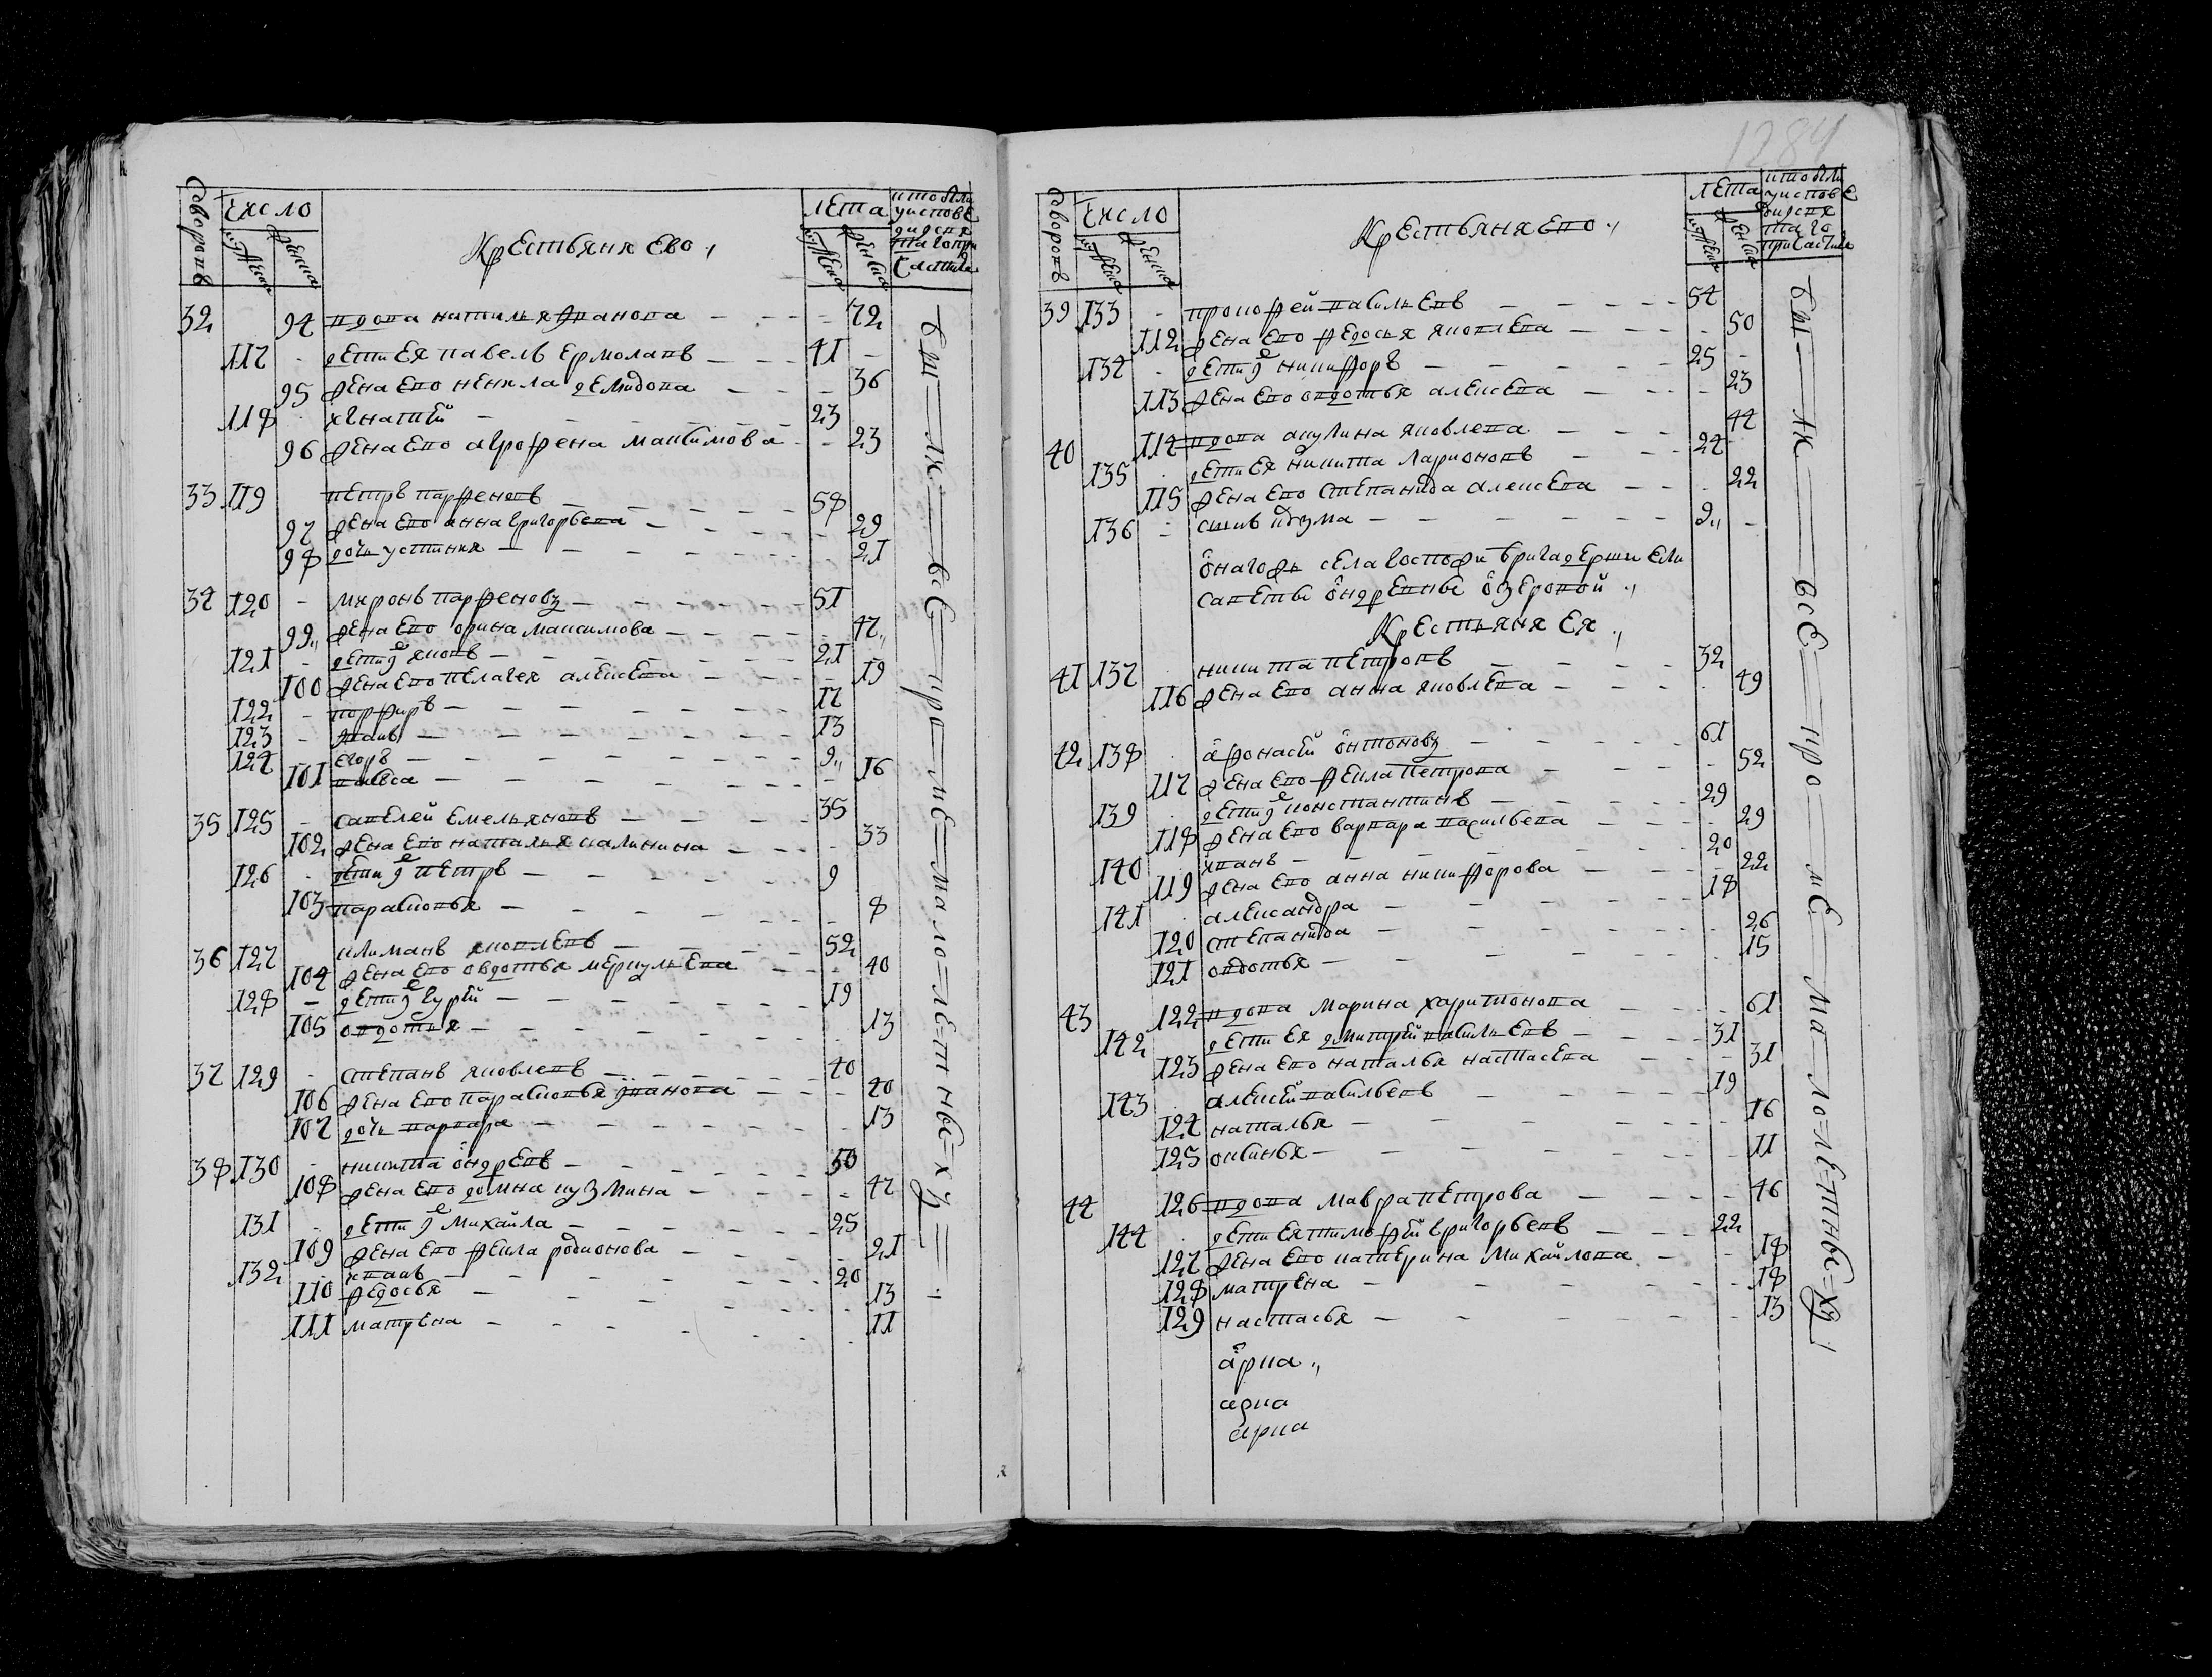 дворовъ
число
мужеска
женска
Крестьяня ево
лета
мужеска
женска
кто были у исповеди и святаго причастия
32 94 вдова наталья иванова 72
117 дети ея павелъ ермолавъ 41
95 жена ево ненила демидова 36
118 игнатей 23
96 жена ево агрофена максимова 23
33 119 петръ парфеновъ 58
97 жена ево анна григорьева 29
98 дочь устинья 21
34 120 миронъ парфеновъ 51
99 жена ево орина максимова 47
121 дети ево яковъ 21
100 жена ево пелагея алексева 19
122 порфиръ 17
123 11
124 егоръ 9
101 васса 16
35 125 савелей емельяновъ 35
102 жена ево наталья калинина 33
126 дети ево петръ 9
103 парасковья 8
36 127 климанъ яковлевъ 52
104 жена ево овдотья меркульева 40
128 дети ево гурей 19
105 овдотья 13
37 129 степанъ яковлевъ 40
106 жена ево парасковья иванова 40
107 дочь варвара 13
38 130 никита ондревъ 50
108 жена ево домна кузмина 47
131 дети ево михайла 25
109 жена ево фекла родионова 21
132 иванъ 20
110 федосья 13
111 матрена 11
бы=ли=все=кро=ме=мало=летны=хъ
1284
дворовъ
число
мужеска
женска
Крестьяня ево
лета
мужеска
женска
кто были у исповеди и святаго причастия
39 133 прокофей васильевъ 54
112 жена ево федосья яковлева 50
134 дети ево никифоръ 25
113 жена ево овдотья алексева 23
40 114 вдова акулина яковлева 44
135 дети ея никита ларионовъ 24
115 жена ево степанида алексева 22
136 сынъ кузма 9
онагожъ села госпожи бригадерши ели
саветы ондревны озеровой
Крестьяня ея
41 137 никита петровъ 32
116 жена ево анна яковлева 49
42 138 афонасей онтоновъ 61
117 жена ево фекла петрова 52
139 дети ево константинъ 29
118 жена ево варвара васильева 29
140 иванъ 20
119 жена ево анна никифорова 22
141 александра 18
120 степанида 26
121 овдотья 15
43 122 вдова марина харитонова 61
142 дети ея дмитрей васильевъ 31
123 жена ево наталья настасева 31
143 алексей васильевъ 19
124 наталья 16
125 оксинья 11
44 126 вдова мавра петрова 46
144 дети ея тимофей григорьевъ 22
127 жена ево катерина михайлова 18
128 матрена 18
129 настасья 13
арка
арка
арка
бы=ли=все=кро=ме=мало=летны=хъ